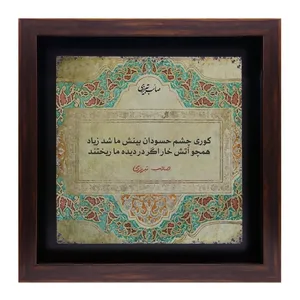 صائب تبریزی
کوری چشم حسودان بینش ما شد زیاد
همچو آتش خار اگر در دیده ما ریختند
(صائب تبریزی)